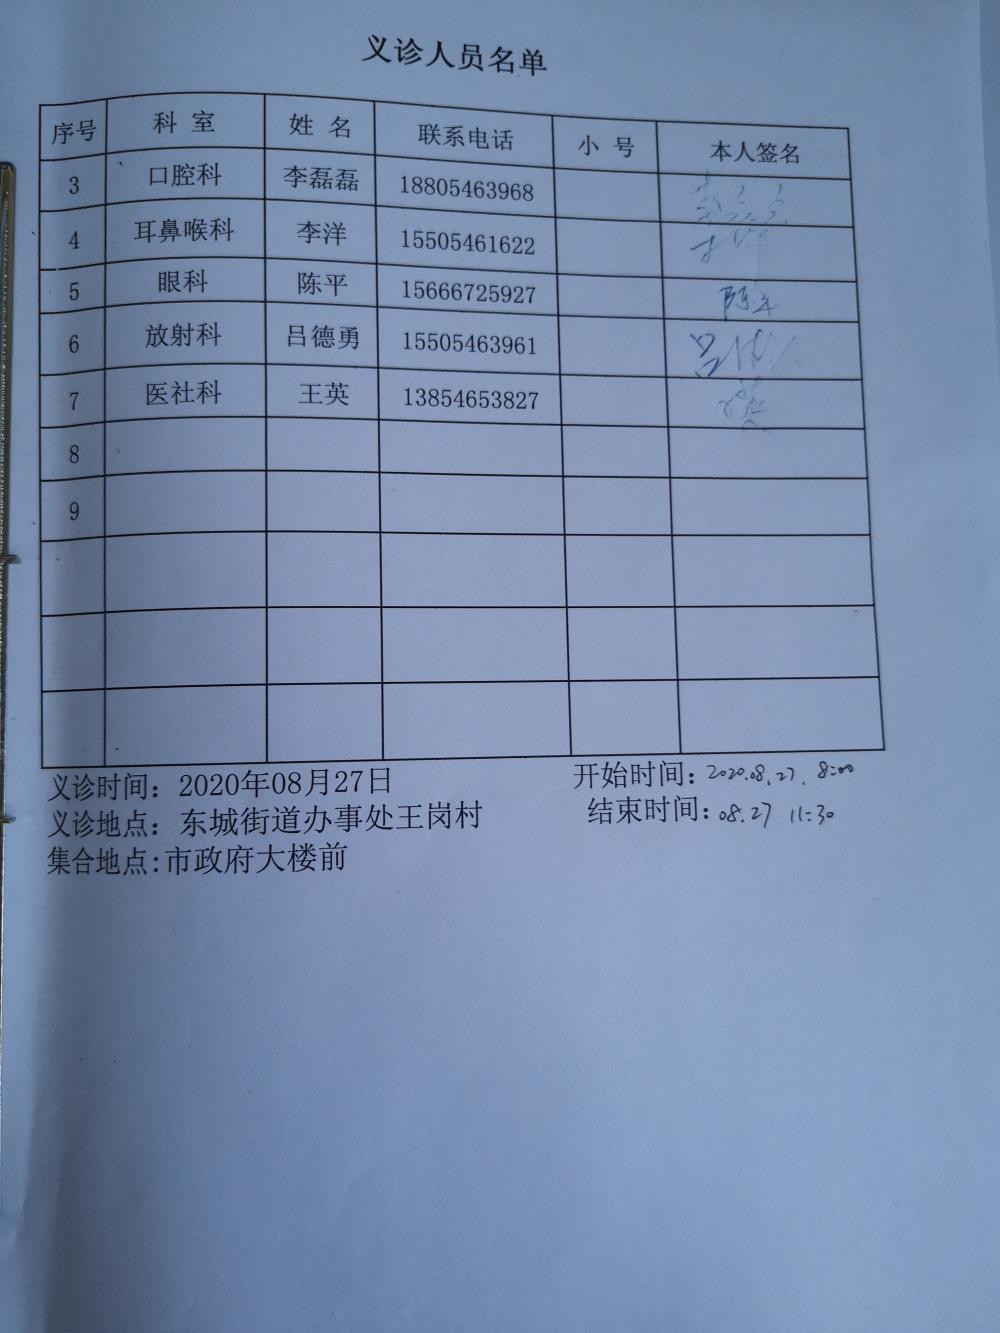 义诊人员名单
序号 科 室 姓 名 联系电话 小 号 本人签名
3 口腔科 李磊磊 18805463968
4 耳鼻喉科 李洋 15505461622
5 眼科 陈平 15666725927 陈平
6 放射科 吕德勇 15505463961
7 医社科 王英 13854653827
8
9
义诊时间：2020年08月27日 开始时间：2020.08.27. 8:00
义诊地点：东城街道办事处王岗村 结束时间：08.27 11:30
集合地点：市政府大楼前